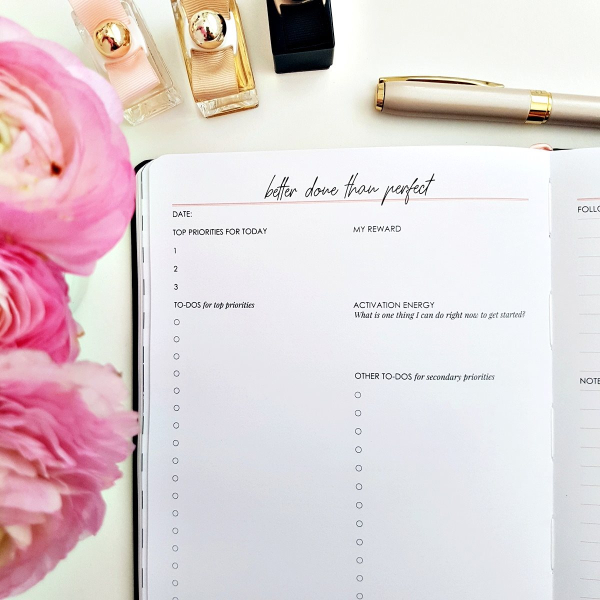 better done than perfect
DATE:
TOP PRIORITIES FOR TODAY
1
2
3
TO-DOS for top priorities
MY REWARD
ACTIVATION ENERGY
What is one thing I can do right now to get started?
OTHER TO-DOS for secondary priorities